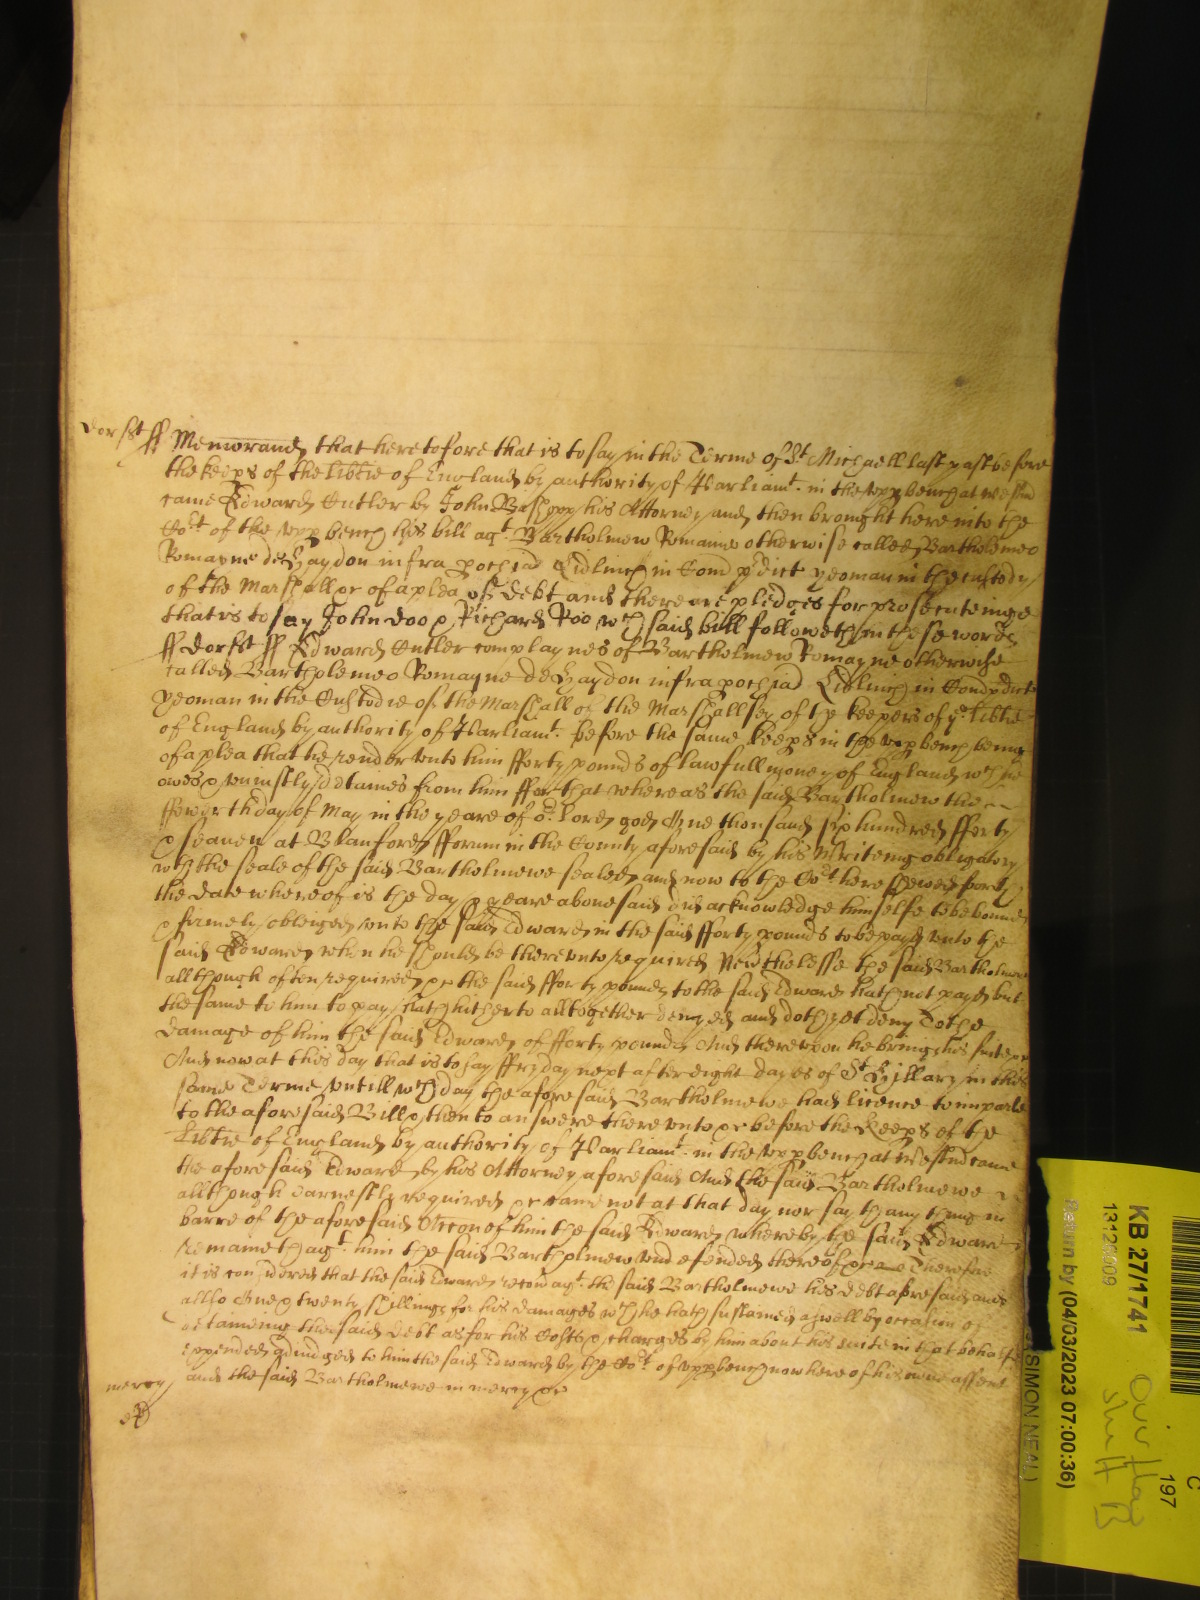 Dorst ff Memorand that heretofore that is to say in the Terme of St Michaell last past before
the keeps of the libtie of England by authority of Parliamt. in the upp bench at westm
came Edward Cutler by John his Attorney and then brought here into the
Cort of the upp bench his bill agt. Bartholmew Romanne otherwise called Bartholomeo
Romayne de Haydon infra pochiad Lidlinch in Com pdict yeoman in the custody
of the Marshall &c of a plea of debt and there are pledges for prosecuteinge
that is to say John Doo & Richard Roo wch said bill followeth in these words
ff Dorst ff Edward Cutler complaynes of Bartholmew Romayne otherwise
called Bartholemeo Romayne de Haydon infra pochiad Lidlinch in Com pdict
yeoman in the Custodie of the Marshall of the Marshallsey of the keepers of ye libtie
of England by authority of Parliamt. before the same keeps in the upp bench being
of a plea that he render unto him fforty pounds of lawfull money of England wch he
owes & uniustly detaines from him ffor that whereas the said Bartholmew the
ffowrth day of May in the yeare of or. Lord god One thousand six hundred fforty
& seaven at Blanford fforum in the County aforesaid by his Writeing obligatory
wth the seale of the said Bartholmewe sealed and now to the Cort here shewed forth
the date whereof is the day & yeare above said did acknowledge himselfe to be bound
& firmely obleiged unto the said Edward in the said fforty pounds to be payd unto the
said Edward when he should be thereunto required Nevthelesse the said Bartholmew
allthough often required &c the said fforty pounds to the said Edward hath not payd but
the same to him to pay hath hitherto alltogether denyed and doth yet deny To the
damage of him the said Edward of fforty pounds And thereupon he brings his suite &c
And now at this day that is to say ffryday next after eight dayes of St Hillary in this
same Terme untill wch day the aforesaid Bartholmewe had licence to imparle
to the aforesaid Bill & then to answere thereunto &c before the Keeps of the
Libtie of England by authority of Parliamt. in the upp bench at Westm came
the aforesaid Edward by his Attorney aforesaid And the said Bartholmewe
allthough earnestly required &c came not at that day nor sayth any thing in
barre of the aforesaid Accon of him the said Edward whereby the said Edward
remaineth agt. him the said Bartholmew undefended thereof &c Therefore
it is considered that the said Edward recov agt. the said Bartholmewe his debt aforesaid and
allso One & twenty shillings for his damages wch he hath susteined aswell by occasion of
detaineing the said debt as for his Costs & charges by him about his suite in that behalfe
expended adiudged to him the said Edward by the Cort of upp bench now here of his owne assent
mercy and the said Bartholmewe in mercy &c
KB 27/1741
13126509
Return by (04/03/2023 07:00:36)
(SIMON NEAL)
C
197